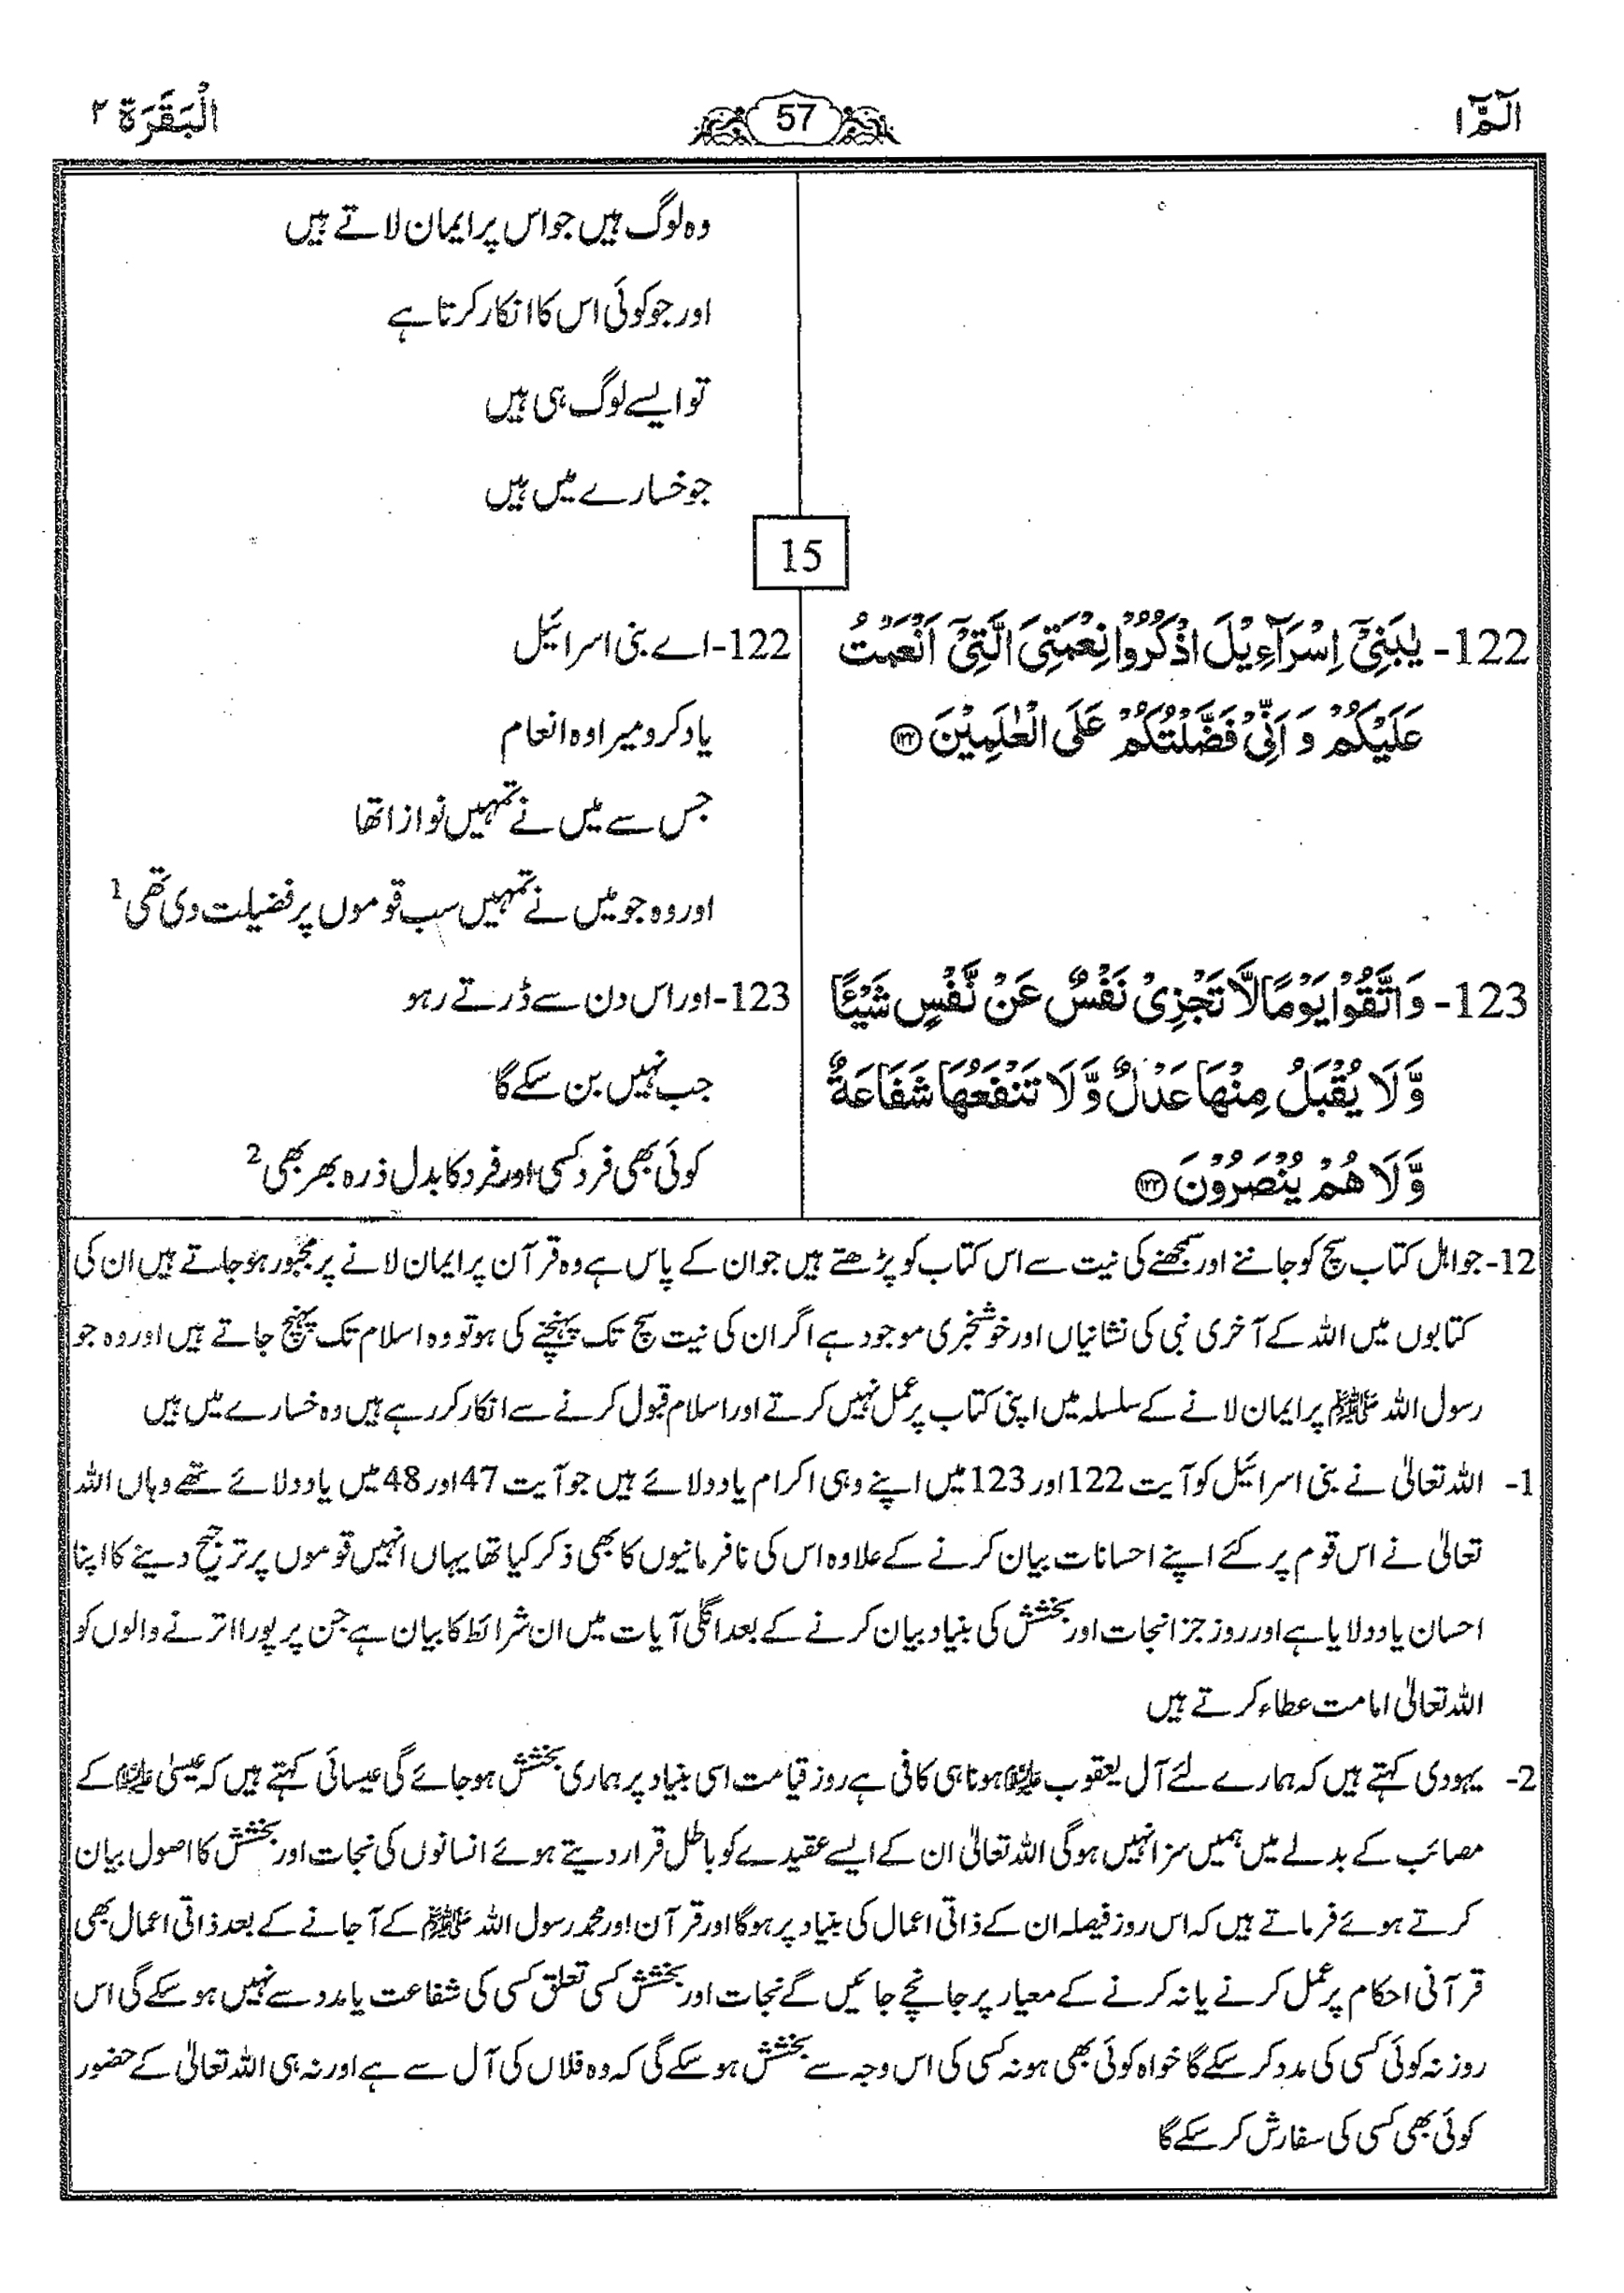 الٓمّٓ ۱
57
الْبَقَرَة ۲
وہ لوگ ہیں جو اس پر ایمان لاتے ہیں
اور جو کوئی اس کا انکار کرتا ہے
تو ایسے لوگ ہی ہیں
جو خسارے میں ہیں
15
122- يٰبَنِيْٓ اِسْرَآءِيْلَ اذْكُرُوْا نِعْمَتِيَ الَّتِيْٓ اَنْعَمْتُ
عَلَيْكُمْ وَ اَنِّيْ فَضَّلْتُكُمْ عَلَى الْعٰلَمِيْنَ ۝۱۲۲
122- اے بنی اسرائیل
یاد کرو میرا وہ انعام
جس سے میں نے تمہیں نوازا تھا
اور وہ جو میں نے تمہیں سب قوموں پر فضیلت دی تھی 1
123- وَاتَّقُوْا يَوْمًا لَّا تَجْزِيْ نَفْسٌ عَنْ نَّفْسٍ شَيْـًٔا
وَّلَا يُقْبَلُ مِنْهَا عَدْلٌ وَّلَا تَنْفَعُهَا شَفَاعَةٌ
وَّلَا هُمْ يُنْصَرُوْنَ ۝۱۲۳
123- اور اس دن سے ڈرتے رہو
جب نہیں بن سکے گا
کوئی بھی فرد کسی اور فرد کا بدل ذرہ بھر بھی 2
12- جو اہل کتاب سچ کو جاننے اور سمجھنے کی نیت سے اس کتاب کو پڑھتے ہیں جو ان کے پاس ہے وہ قرآن پر ایمان لانے پر مجبور ہو جاتے ہیں ان کی
کتابوں میں اللہ کے آخری نبی کی نشانیاں اور خوشخبری موجود ہے اگر ان کی نیت سچ تک پہنچنے کی ہو تو وہ اسلام تک پہنچ جاتے ہیں اور وہ جو
رسول اللہ ﷺ پر ایمان لانے کے سلسلہ میں اپنی کتاب پر عمل نہیں کرتے اور اسلام قبول کرنے سے انکار کر رہے ہیں وہ خسارے میں ہیں
1- اللہ تعالیٰ نے بنی اسرائیل کو آیت 122 اور 123 میں اپنے وہی اکرام یاد دلائے ہیں جو آیت 47 اور 48 میں یاد دلائے تھے وہاں اللہ
تعالیٰ نے اس قوم پر کئے اپنے احسانات بیان کرنے کے علاوہ اس کی نافرمانیوں کا بھی ذکر کیا تھا یہاں انہیں قوموں پر ترجیح دینے کا اپنا
احسان یاد دلایا ہے اور روز جزا نجات اور بخشش کی بنیاد بیان کرنے کے بعد اگلی آیات میں ان شرائط کا بیان ہے جن پر پورا اترنے والوں کو
اللہ تعالیٰ امامت عطاء کرتے ہیں
2- یہودی کہتے ہیں کہ ہمارے لئے آل یعقوب علیہ السلام ہونا ہی کافی ہے روز قیامت اسی بنیاد پر ہماری بخشش ہو جائے گی عیسائی کہتے ہیں کہ عیسیٰ علیہ السلام کے
مصائب کے بدلے میں ہمیں سزا نہیں ہوگی اللہ تعالیٰ ان کے ایسے عقیدے کو باطل قرار دیتے ہوئے انسانوں کی نجات اور بخشش کا اصول بیان
کرتے ہوئے فرماتے ہیں کہ اس روز فیصلہ ان کے ذاتی اعمال کی بنیاد پر ہوگا اور قرآن اور محمد رسول اللہ ﷺ کے آ جانے کے بعد ذاتی اعمال بھی
قرآنی احکام پر عمل کرنے یا نہ کرنے کے معیار پر جانچے جائیں گے نجات اور بخشش کسی تعلق کسی کی شفاعت یا مدد سے نہیں ہو سکے گی اس
روز نہ کوئی کسی کی مدد کر سکے گا خواہ کوئی بھی ہو نہ کسی کی اس وجہ سے بخشش ہو سکے گی کہ وہ فلاں کی آل سے ہے اور نہ ہی اللہ تعالیٰ کے حضور
کوئی بھی کسی کی سفارش کر سکے گا